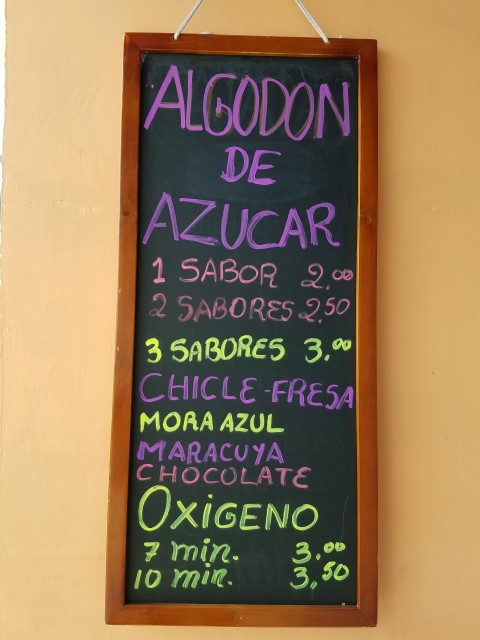 ALGODON
DE
AZUCAR
1 SABOR 2.00
2 SABORES 2.50
3 SABORES 3.00
CHICLE-FRESA
MORA AZUL
MARACUYA
CHOCOLATE
OXiGENO
7 min. 3.00
10 min. 3,50